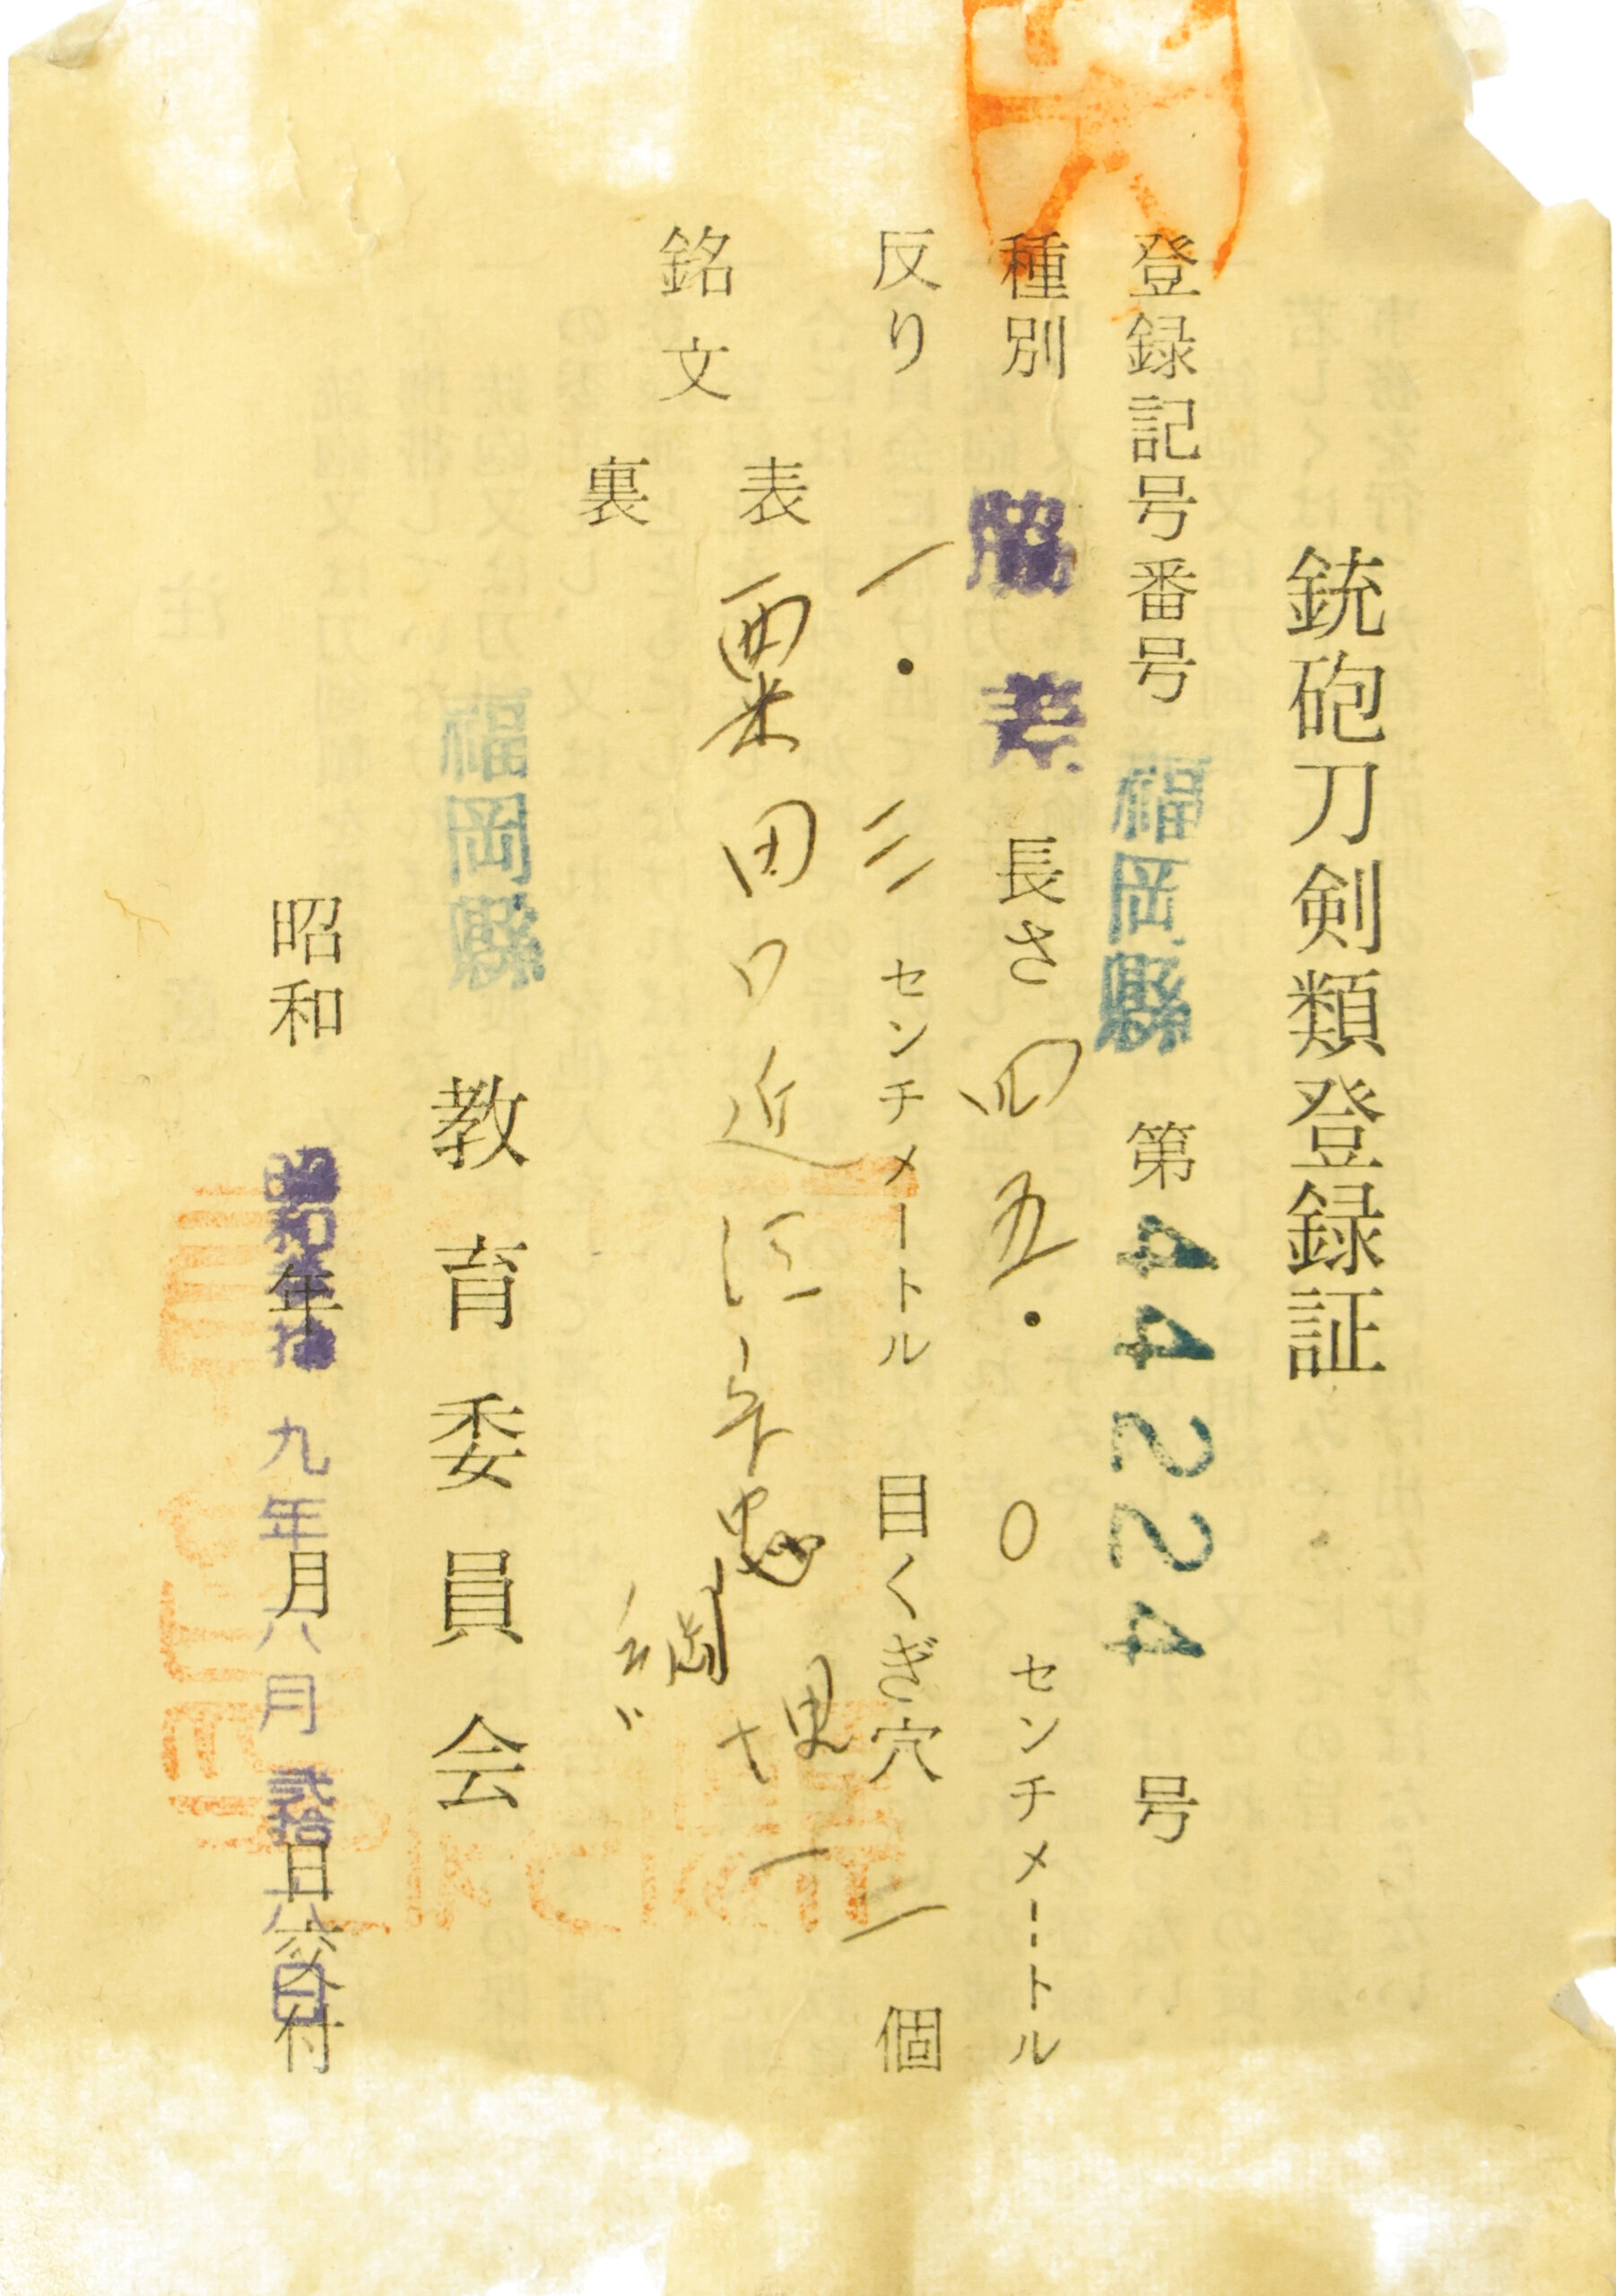 銃砲刀剣類登録証
登録記号番号 福岡縣 第 44224 号
種別 脇差 長さ 四五.〇 センチメートル
反り 一.二 センチメートル 目くぎ穴 一 個
銘文
表 粟田口近江守忠綱
裏
福岡縣 教育委員会
昭和 年 月 日交付
九年 八月 貳拾八日